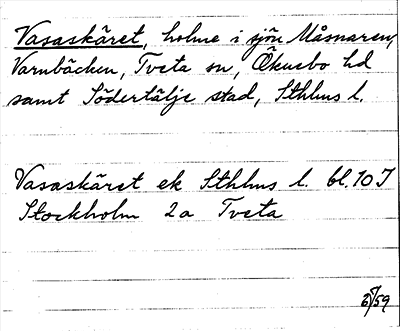 Vasaskäret, holme i sjön Måsnaren,
Varnbäcken, Tveta sn, Öknebo hd
samt Södertälje stad, Sthlms l.
Vasaskäret ek Sthlms l. bl. 10 I
Stockholm 2a Tveta